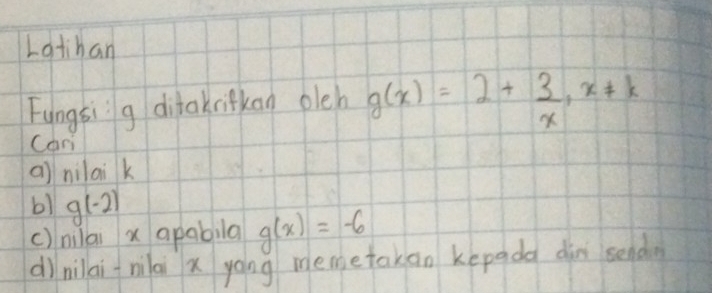 Latihan
Fungsi g ditakrifkan oleh g(x) = 2 + 3/x, x ≠ k
Cari
a) nilai k
b) g(-2)
c) nilai x apabila g(x) = -6
d) nilai-nilai x yang memetakan kepada diri sendiri